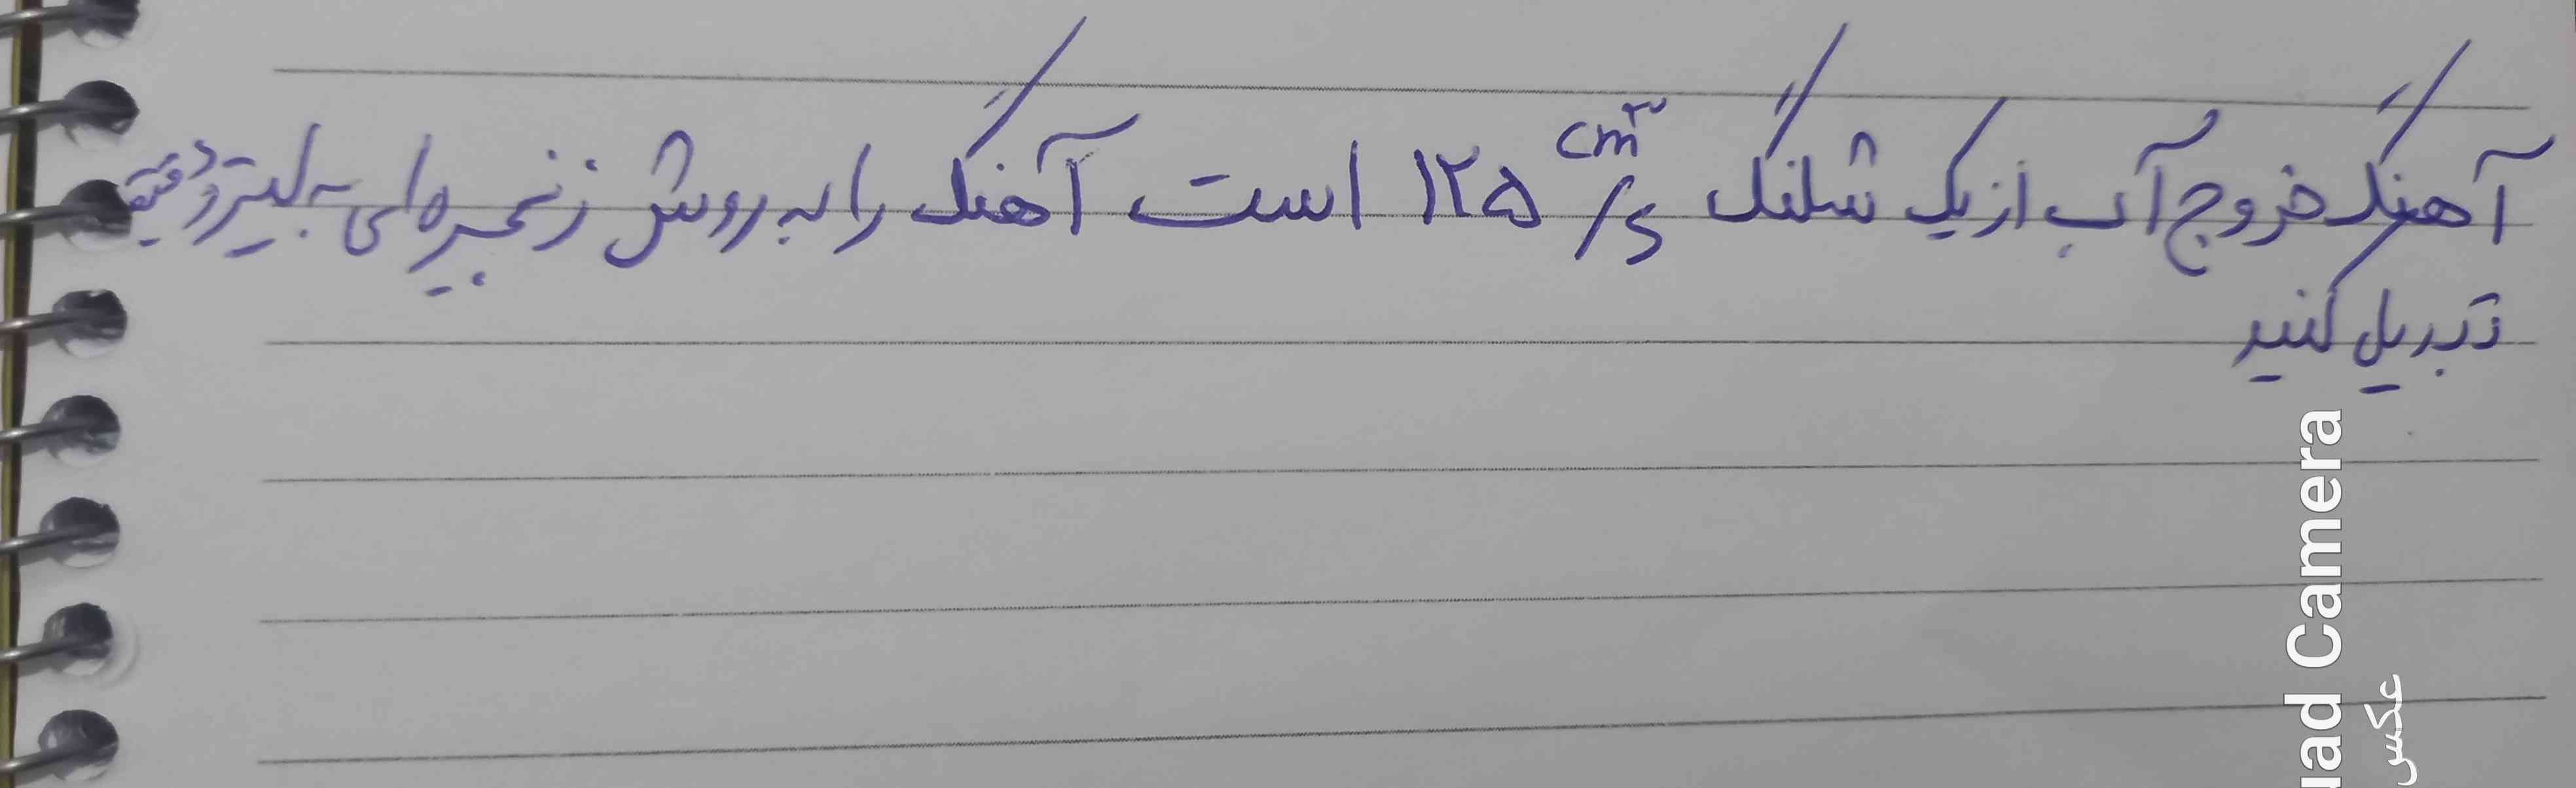 آهنگ خروج آب از یک شلنگ ۱۲۵ cm³/s است آهنگ را به روش زنجیره ای به لیتر دقیقه
تبدیل کنید
uad Camera
عکس